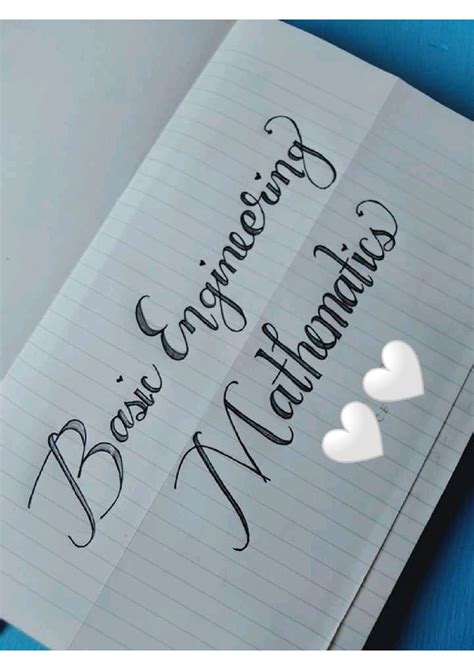 Basic Engineering
Mathematics